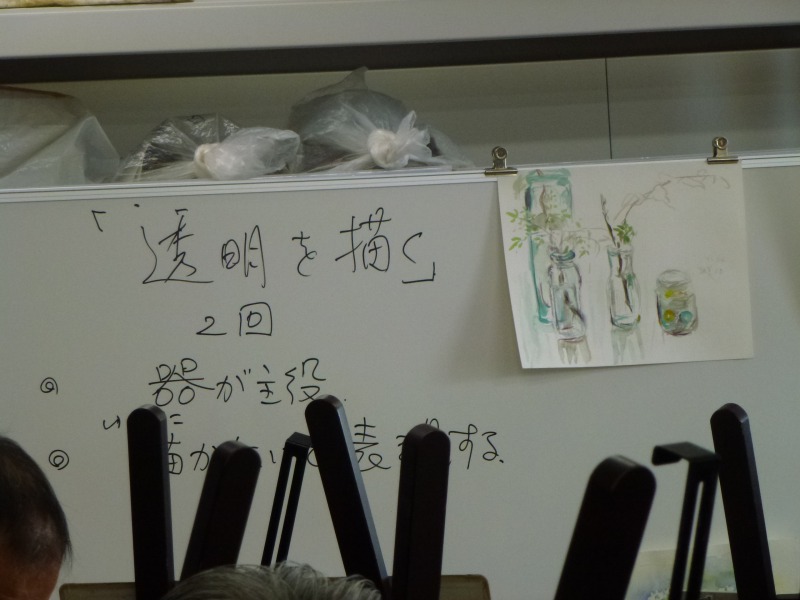 「透明を描く」
2回
◎ 器が主役.
◎ 描かないで表現する.